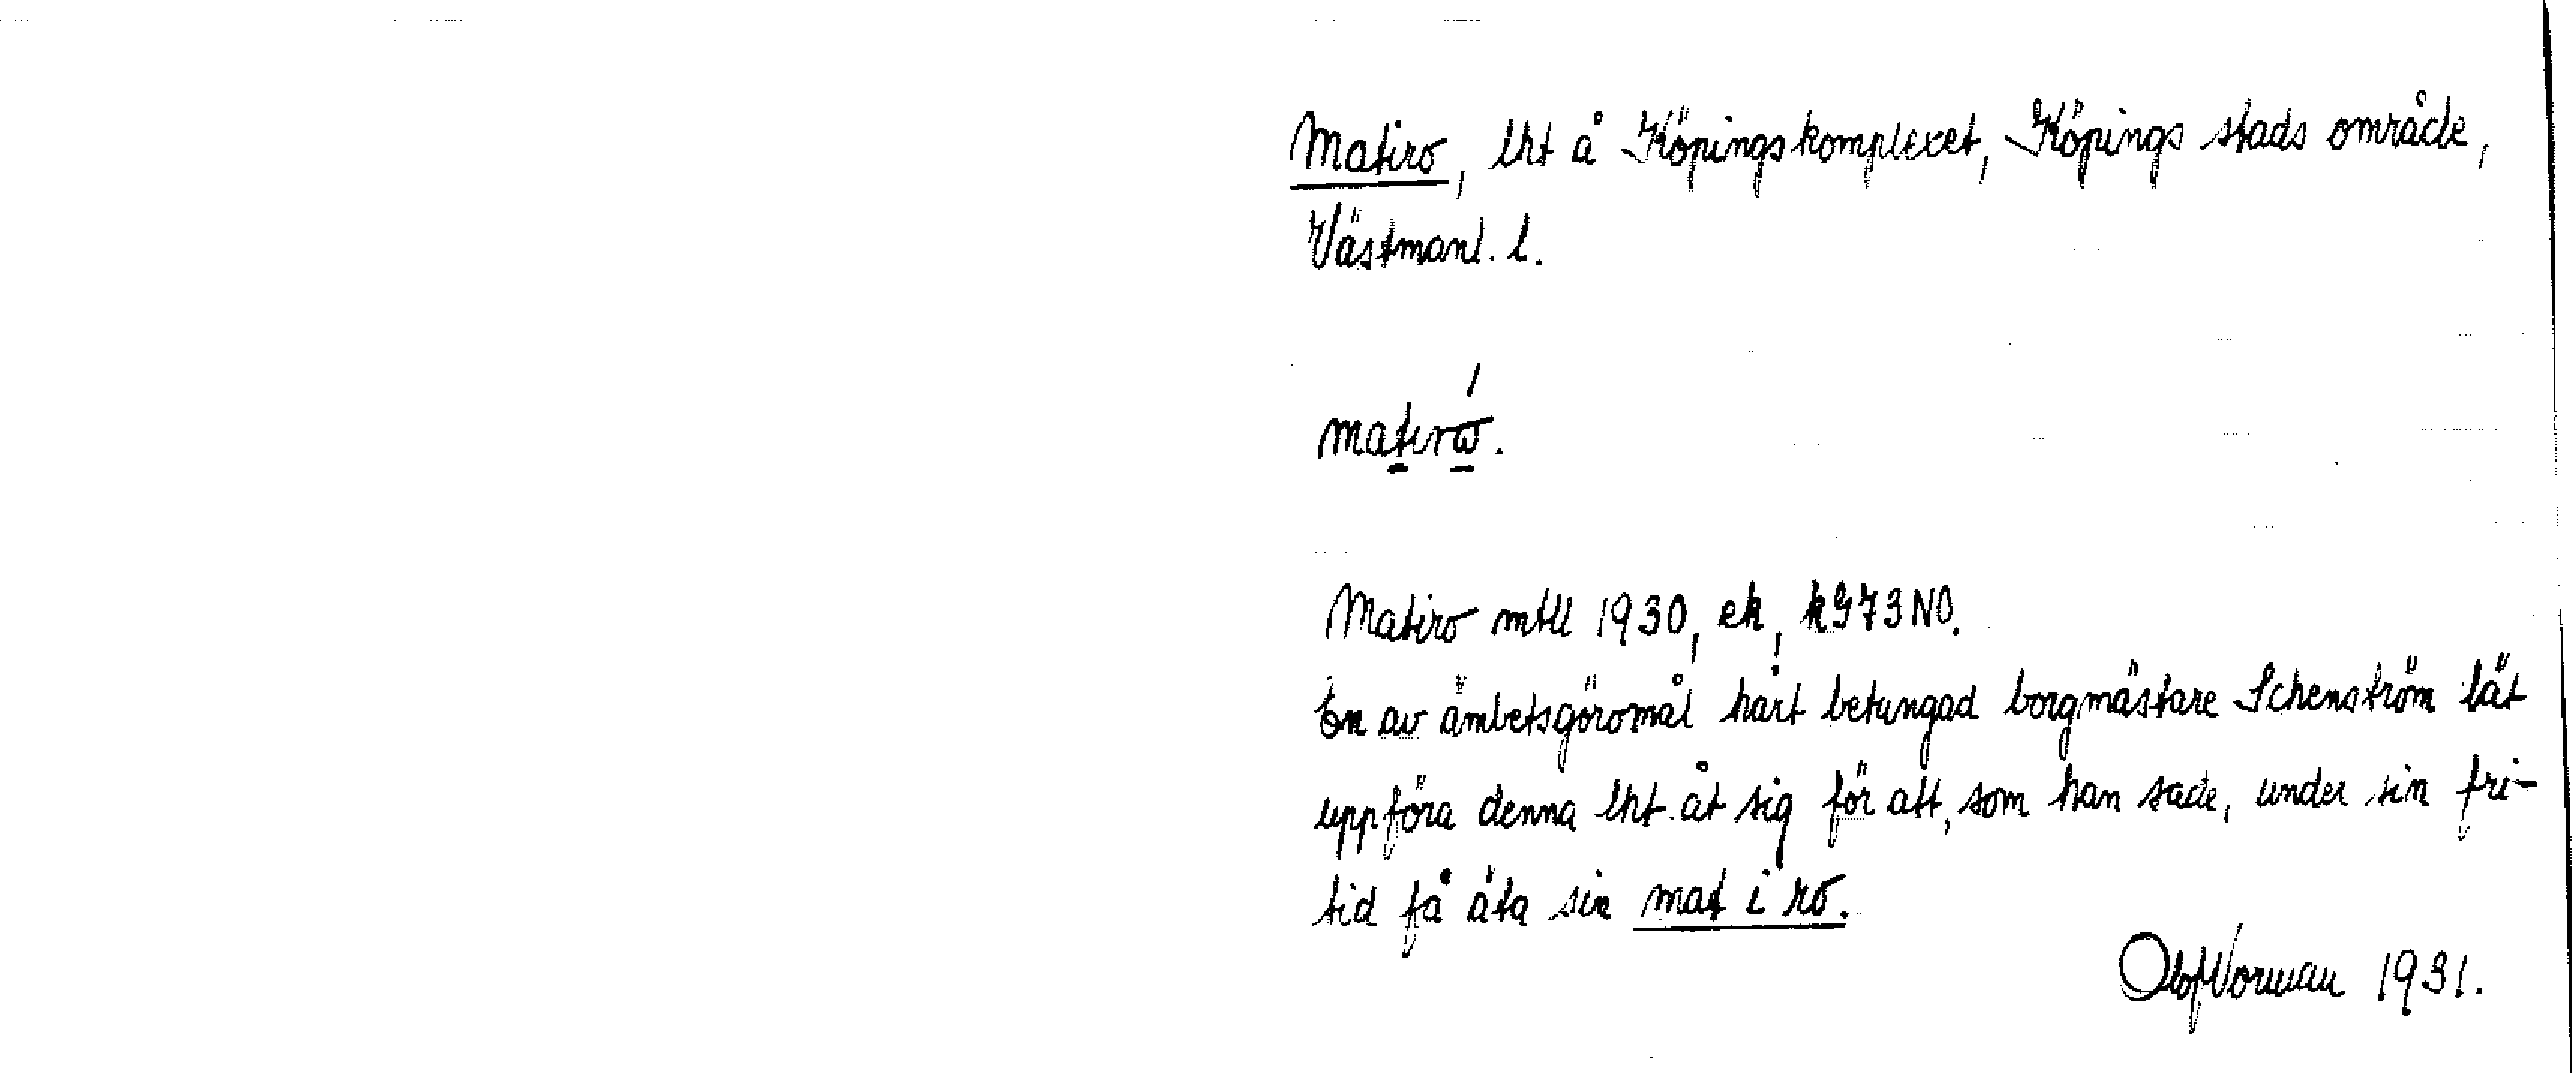 Matiro, lht å Köpingskomplexet, Köpings stads område,
Västmanl. l.
matirώ.
Matiro mtll 1930, ek, kG73NO.
En av ämbetsgöromål hårt betungad borgmästare Schenström lät
uppföra denna lht åt sig för att, som han sade, under sin fri-
tid få äta sin mat i ro.
Olof Norman 1931.